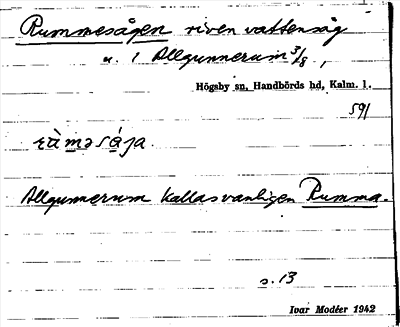 Rummesågen riven vattensåg
u. 1 Allgunnerum 3/8,
Högsby sn, Handbörds hd, Kalm. l.
591
Allgunnerum kallas vanligen Rumma.
s. 13
Ivar Modéer 1942